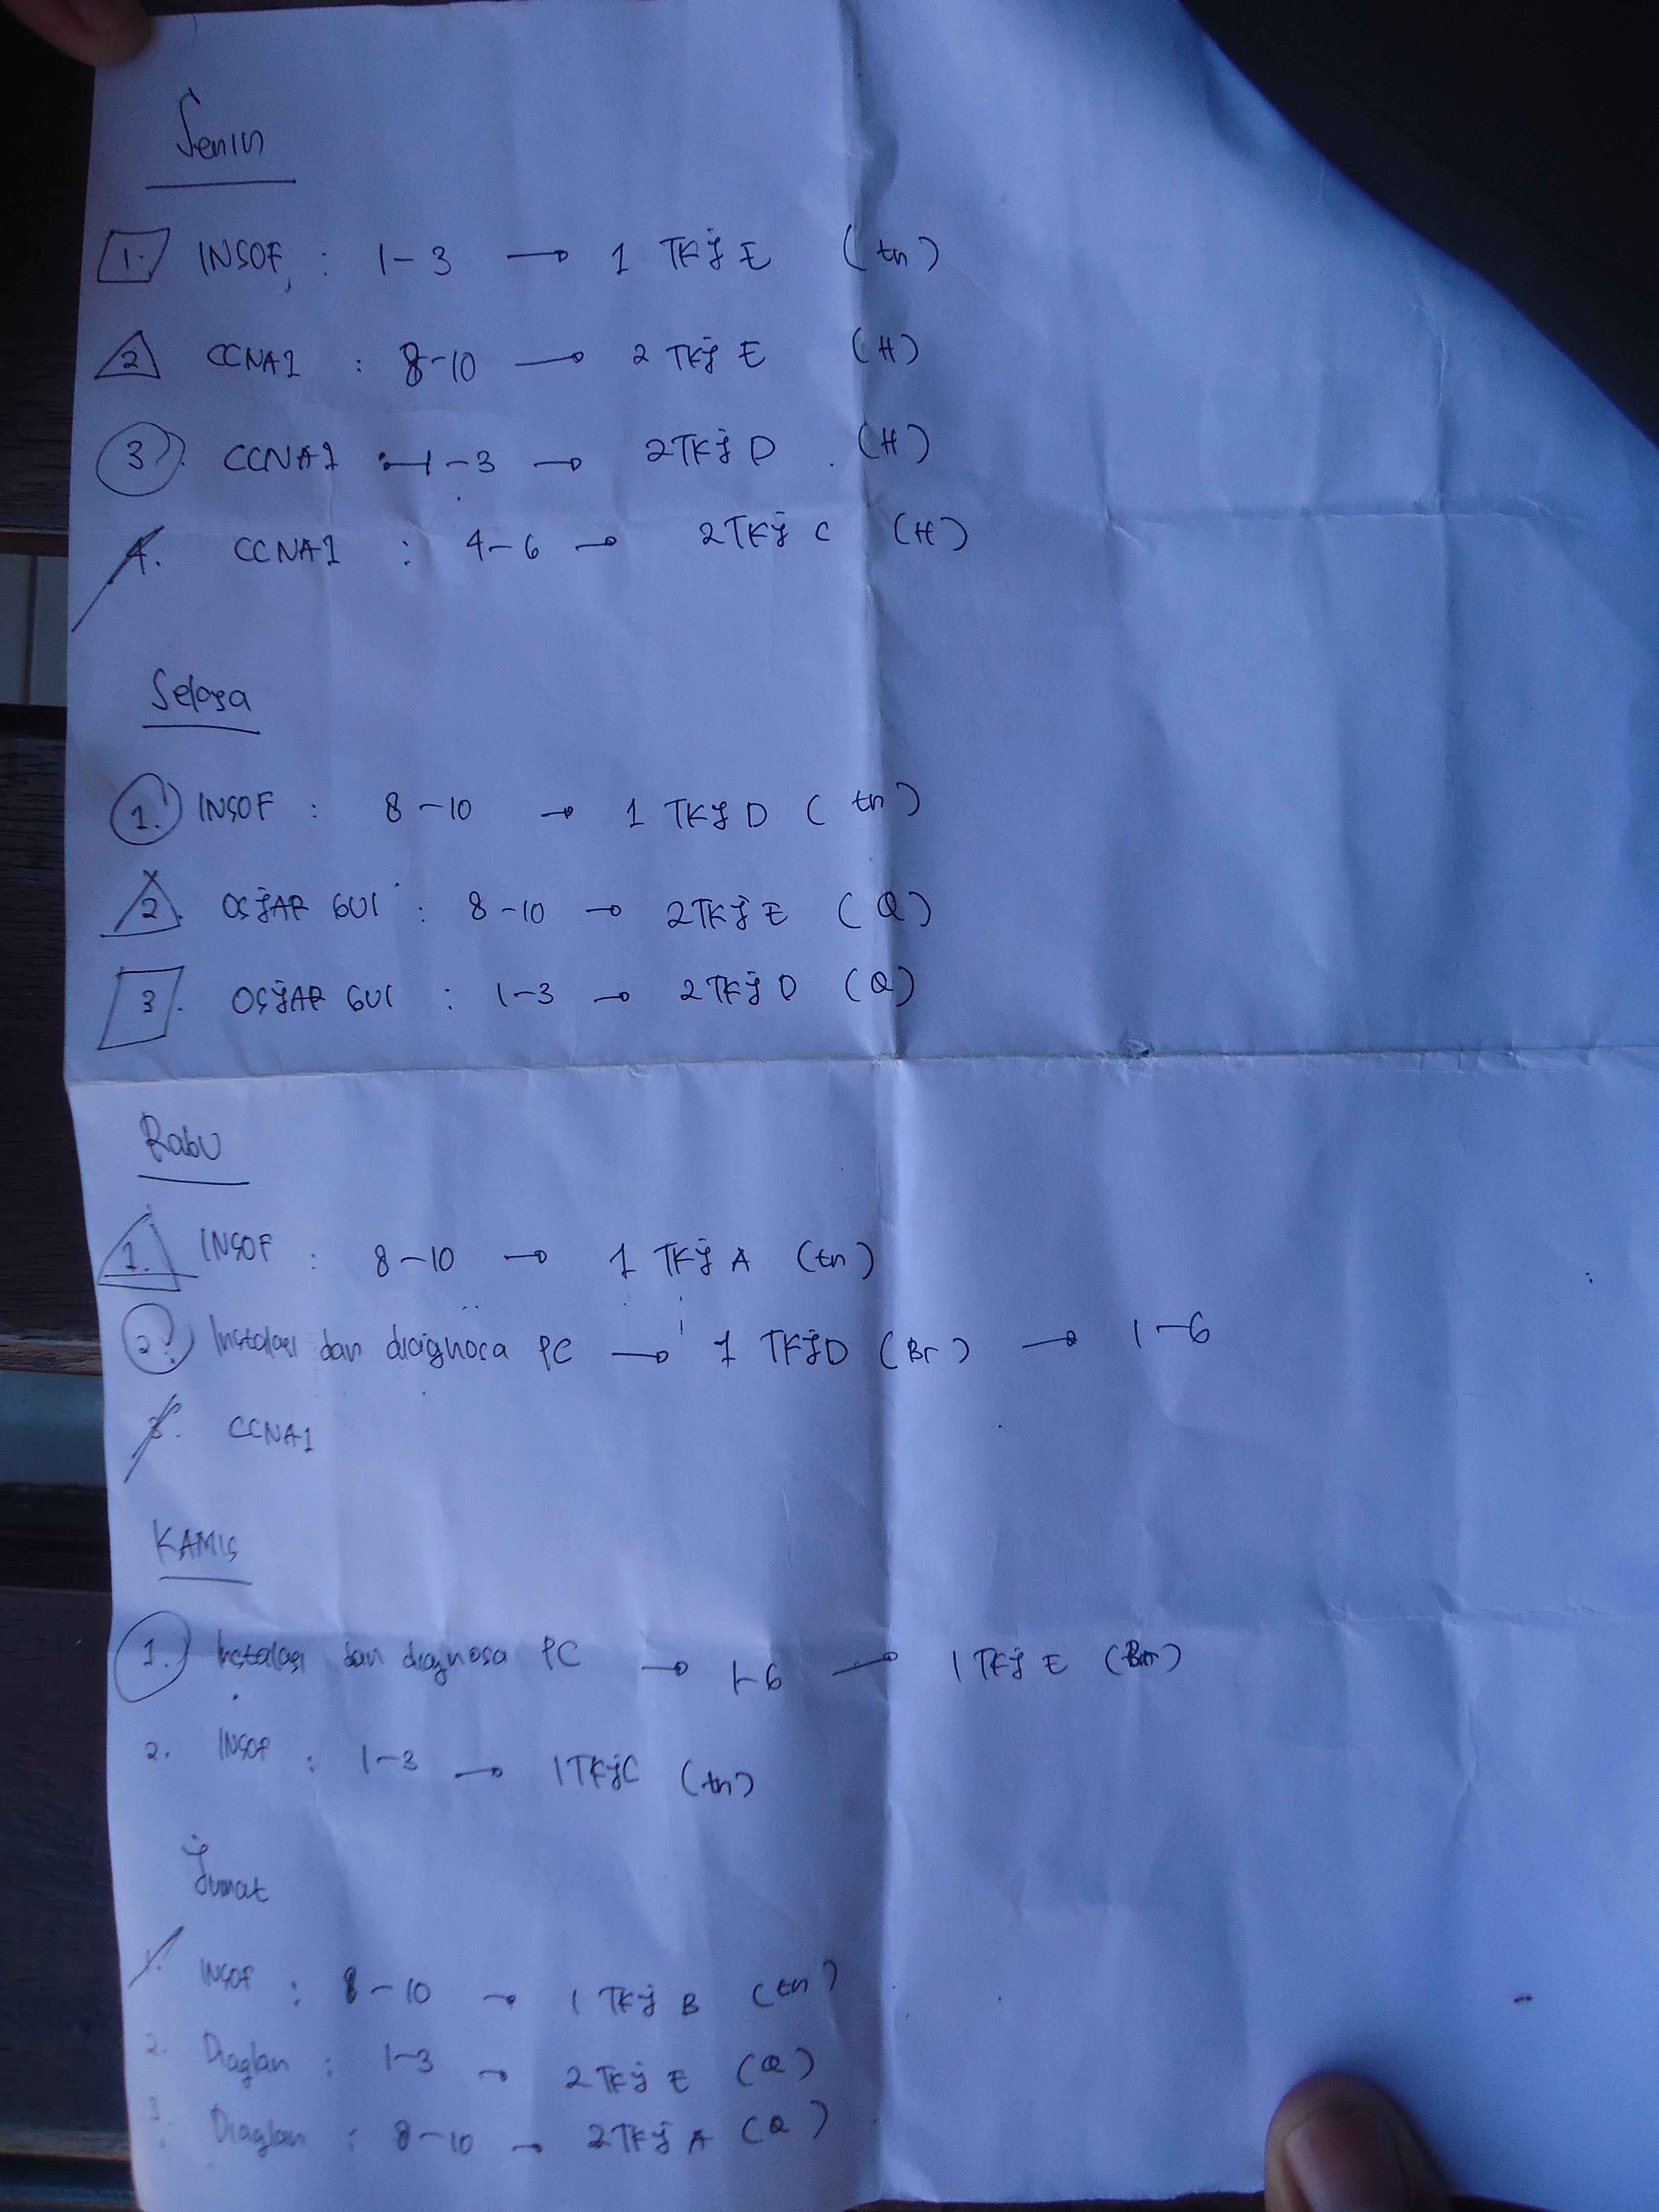 Senin
1. INSOF : 1-3 → 1 TKJ E (tn)
2 CCNA1 : 8-10 → 2 TKJ E (H)
3. CCNA1 : 1-3 → 2TKJ D (H)
4. CCNA1 : 4-6 → 2TKJ C (H)
Selasa
1. INSOF : 8-10 → 1 TKJ D (tn)
2. OSJAR GUI : 8-10 → 2TKJ E (Q)
3. OSJAR GUI : 1-3 → 2TKJ D (Q)
Rabu
1. INSOF : 8-10 → 1 TKJ A (tn)
2. Instalasi dan diagnosa PC → 1 TKJD (Br) → 1-6
3. CCNA1
KAMIS
1. Instalasi dan diagnosa PC → 1-6 → 1 TKJ E
2. INSOF : 1-3 → 1TKJC (tn)
Jumat
1. INSOF : 8-10 → 1 TKJ B (tn)
2. Diaglan : 1-3 → 2TKJ E (Q)
3. Diaglan : 8-10 → 2TKJ A (Q)